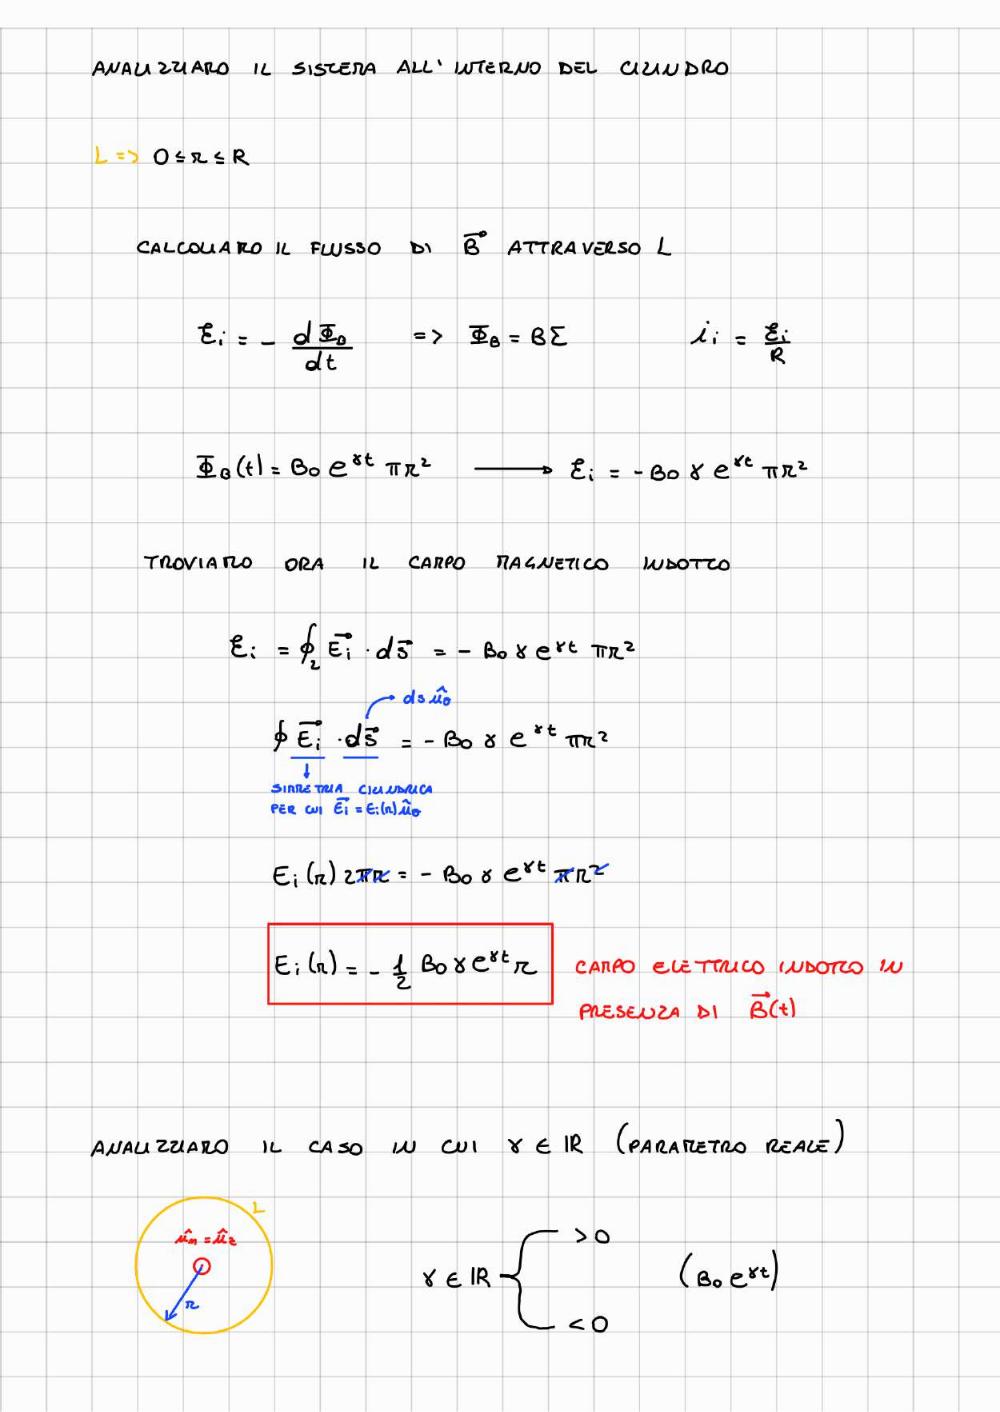 ANALIZZIAMO IL SISTEMA ALL'INTERNO DEL CILINDRO
L => 0 ≤ r ≤ R
CALCOLIAMO IL FLUSSO DI B⃗ ATTRAVERSO L
Ɛi = - dΦB/dt => ΦB = BΣ ii = Ɛi/R
ΦB(t) = B0 e^γt πr² ⟶ Ɛi = -B0 γ e^γt πr²
TROVIAMO ORA IL CAMPO MAGNETICO INDOTTO
Ɛi = ∮L E⃗i · ds⃗ = - B0 γ e^γt πr²
ds ûθ
∮ E⃗i · ds⃗ = - B0 γ e^γt πr²
SIMMETRIA CILINDRICA
PER CUI E⃗i = Ei(r) ûθ
Ei(r) 2πr = - B0 γ e^γt πr²
Ei(r) = - 1/2 B0 γ e^γt r CAMPO ELETTRICO INDOTTO IN
PRESENZA DI B⃗(t)
ANALIZZIAMO IL CASO IN CUI γ ∈ IR (PARAMETRO REALE)
L
ûn = ûz
r
> 0
γ ∈ IR (B0 e^γt)
< 0